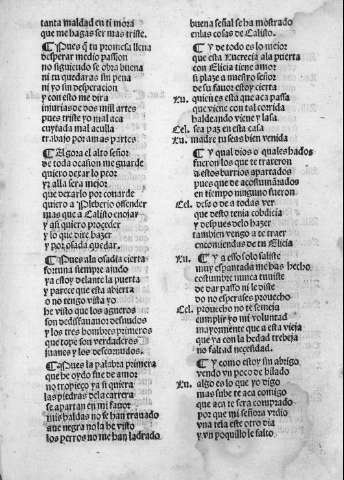 tanta maldad en ti mora
que me hagas ser mas triste.
¶ Pues q̃ tu promesa llena
desperar medio passion
no siguiendo se obra buena
ni tu quedaras sin pena
ni yo sin desperacion
y con esto me dira
injurias de dos mill artes
pues triste yo mal aca
cuytada mal aculla
trabajo por amas partes
¶ Agora el alto señor
de toda ocasion me guarde
quiero dexar lo peor
yr alla sera mejor
que dexarlo por couarde
quiero a Pleberio offender
mas que a Calisto enojar
y assi quiero proceder
y lo que dire hazer
y por osada quedar.
¶ Pues ala osadia cierta
fortuna siempre ayudo
ya estoy delante la puerta
y parece que esta abierta
o no tengo vista yo
he visto que los agueros
son
y los tres hombres primeros
que tope son verdaderos
juanes y los descornudos.
¶ Pues la palabra primera
que he oydo fue de amor
no tropieço ya si quiera
las piedras dela carrera
se apartan en mi fauor
mis haldas no se han trauado
aue negra no la he visto
los perros no me han ladrado
buena señal se ha mostrado
enlas cosas de Calisto.
¶ Y de todo es lo mejor
que esta Lucrecia ala puerta
con Elicia tiene amor
si plaze a nuestro señor
de su fauor estoy cierta
Lu. quien es esta que aca passa
que viene con tal corrida
haldeando viene y lasa
Cel. sea paz en esta casa
Lu. madre tu seas bien venida
¶ Y qual dios o quales hados
fueron los que te traxeron
a estos barrios apartados
pues que de acostumbrados
en tiempo ninguno fueron
Cel. desseo de a todas ver
que desto tenia cobdicia
y despues delo hazer
tambien vengo a te traer
encomiendas de tu Elicia
Lu. ¶ Y a esso solo saliste
muy espantada me has hecho
costumbre nunca tuuiste
de dar passo ni le diste
do no esperasses prouecho
Cel. prouecho no te semeja
cumplir yo mi voluntad
mayormente que a esta vieja
que ya con la hedad trebeja
no falta d necesidad.
¶ Y como estoy sin abrigo
vendo vn poco de hilado
Lu. algo es lo que yo digo
mas sube te aca comigo
que aca te sera comprado
por que mi señora vrdio
vna tela este otro dia
y vn poquillo le falto